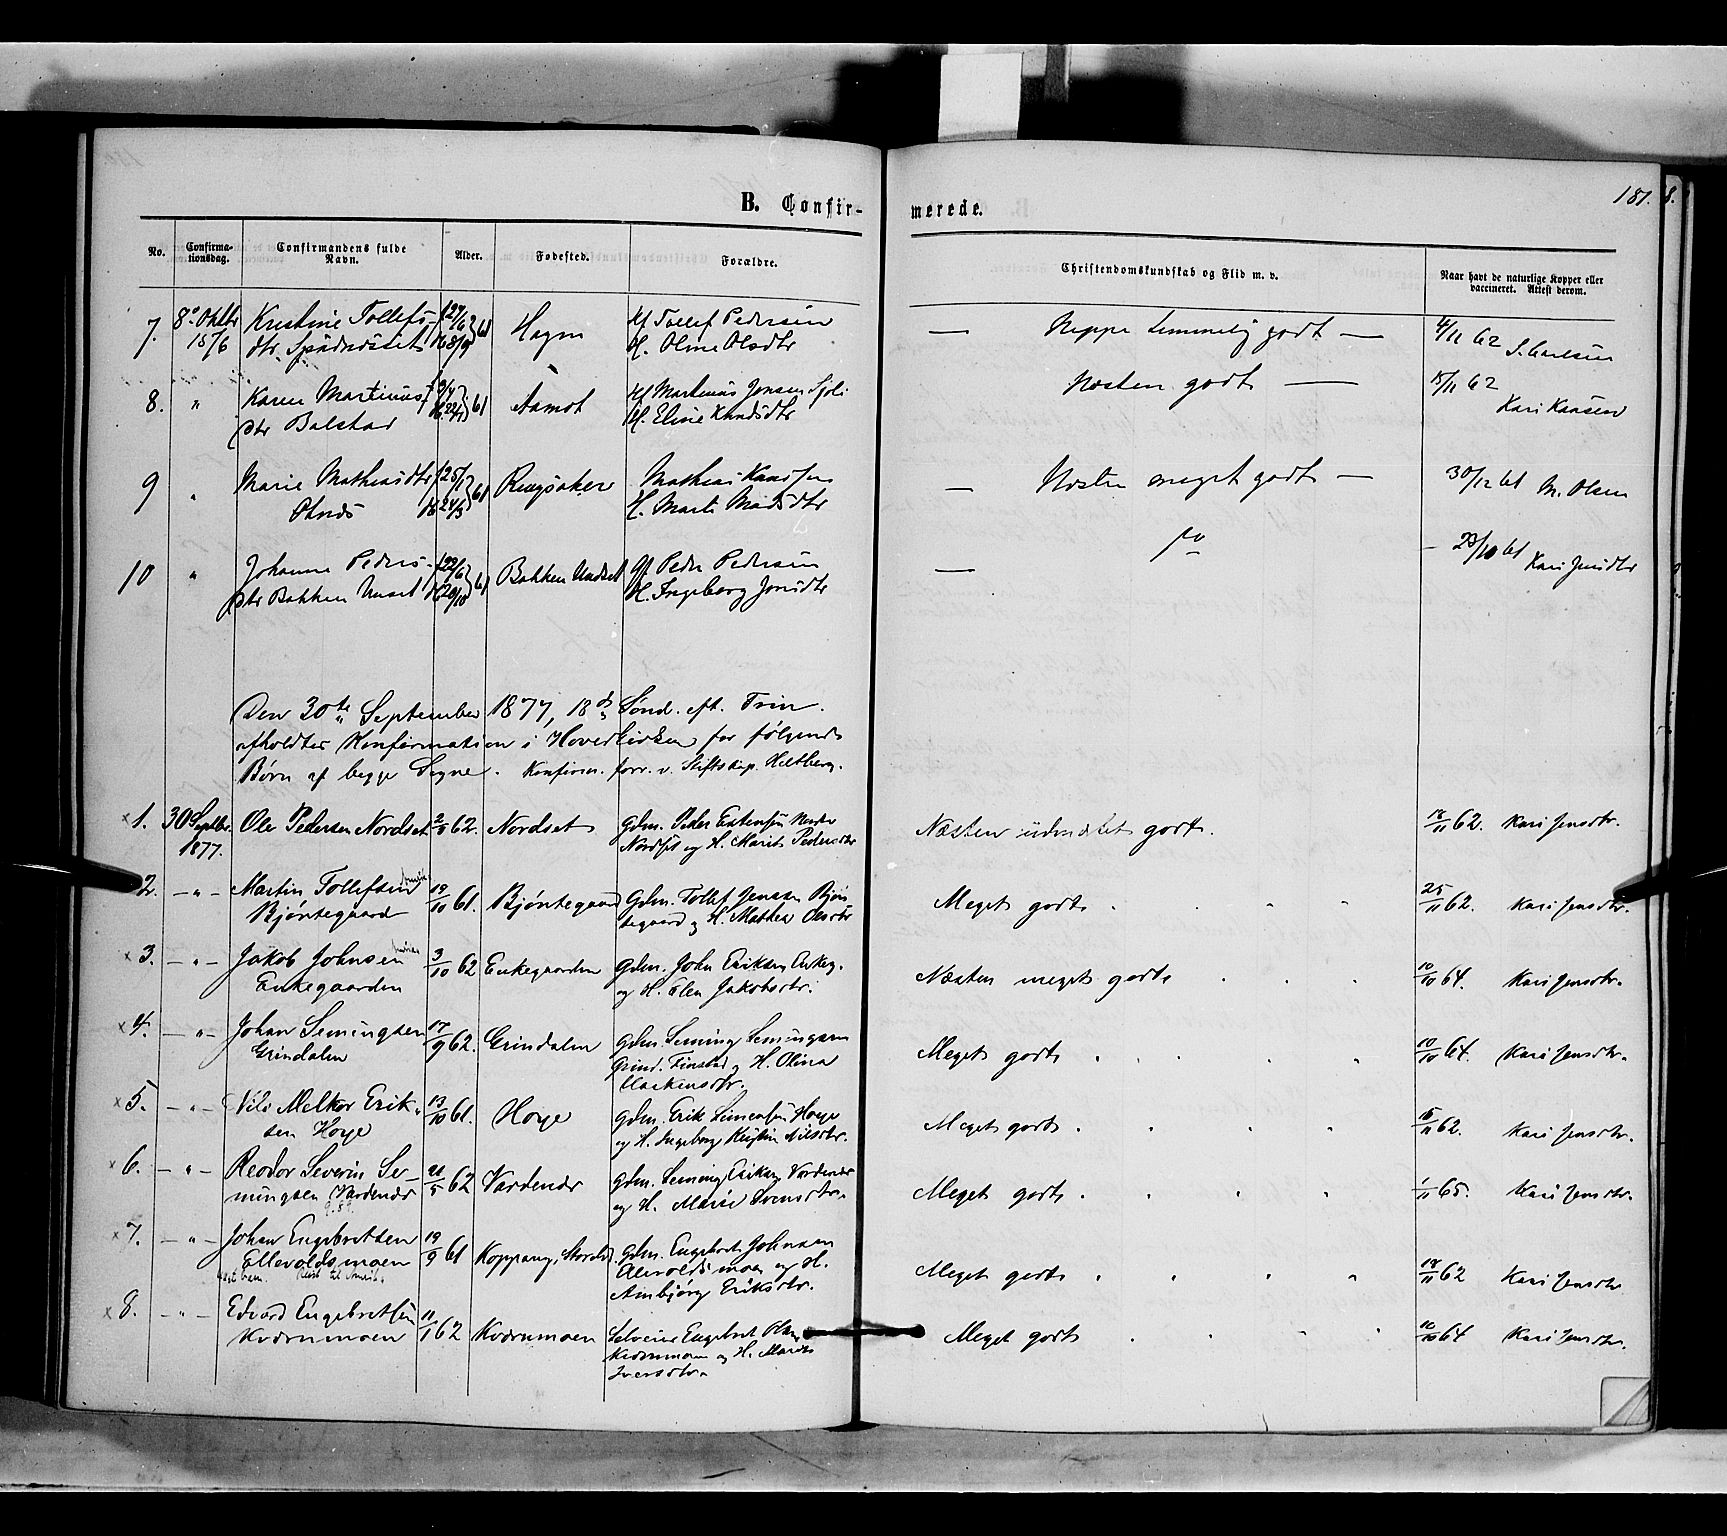 181.
B. Confir-
merede.
No.
Confirma-
tionsdag.
Confirmandens fulde
Navn.
Alder.
Fødested.
Forældre.
Christendomskundskab og Flid m. v.
Naar havt de naturlige Kopper eller
vaccineret. Attest derom.
7.
Kristine Tollefs-
dtr.
Tollef Pedersen
H. Oline Olsdtr
godt —
4/11 62
8.
"
Karen Martinus-
dtr Bolstad
61
Aamot
Martinus Jensen
H. Eline Knudsdtr
Næsten godt —
15/11 62
Kari Kaasen
9
"
Marie Mathiasdtr
61
Ringsaker
Mathias
H. Marte Madsdtr
— Næsten meget godt —
30/12 61 M. Olsen
10
"
Johanne Peders-
dtr Bakken Unset
61
Bakken Undset
Peder Pedersen
H. Ingeborg Jonsdtr
—
Kari Jensdtr
Den 30te September 1877, 18de Sønd. eft. Trin.
afholdtes Konfirmation i Hovedkirken for følgende
Børn af begge Sogne. Konfirm. forr. v. Stiftskap. Hiltberg.
× 1. 30 Septbr.
1877.
Ole Pedersen Nordset
62.
Nordset
Gdm. Peder Estensen
Nordset og H. Marit Pedersdtr
Næsten udmærket godt.
18/11 62. Kari Jensdtr.
2. — " —
Martin Tollefsen
Bjøntegaard
19/10 61.
Bjøntegaard
Gdm. Tollef Jensen Bjøn-
tegaard og H. Mathea Olsdtr
Meget godt .
25/11 62. Kari Jensdtr.
× 3. — " —
Jakob Johnsen
Enkegaarden
3/10 62
Enkegaarden
Gdm. John Eriksen Enkeg.
og H. Elen Jakobsdtr.
Næsten meget godt
10/10 64. Kari Jensdtr.
× 4. — " —
Johan Semingsen
Grindalen
17/9 62.
Grindalen
Gdm. Seming Semingsen
Grind. Finstad og H. Olina
Haakensdtr.
Meget godt .
10/10 64. Kari Jensdtr.
× 5. — " —
Nils Melkor Erik-
sen Hoye
13/10 61.
Hoye
Gdm. Erik Simensen Hoye
og H. Ingeborg Kristin Nilsdtr.
Meget godt .
15/11 62. Kari Jensdtr.
× 6. — " —
Reodor Severin Se-
mingsen Vardenær
21/5 62
Vardenær
Gdm. Seming Eriksen Vardenær
og H. Marie Svensdtr.
Meget godt .
1/11 65. Kari Jensdtr.
× 7. — " —
Johan Engebretsen
Ellevoldsmoen
19/9 61
Koppang, Storelvd.
Gdm. Engebret Johnsen
Ellevoldsmoen og H.
Ambjørg Eriksdtr.
Meget godt .
18/11 62 Kari Jensdtr
× 8. — " —
Edvard Engebretsen
Kværnmoen
11/1 62
Kværnmoen
Selveier Engebret Olsen
Kværnmoen og H. Marthe
Iversdtr.
Meget godt
10/10 64 Kari Jensdtr.